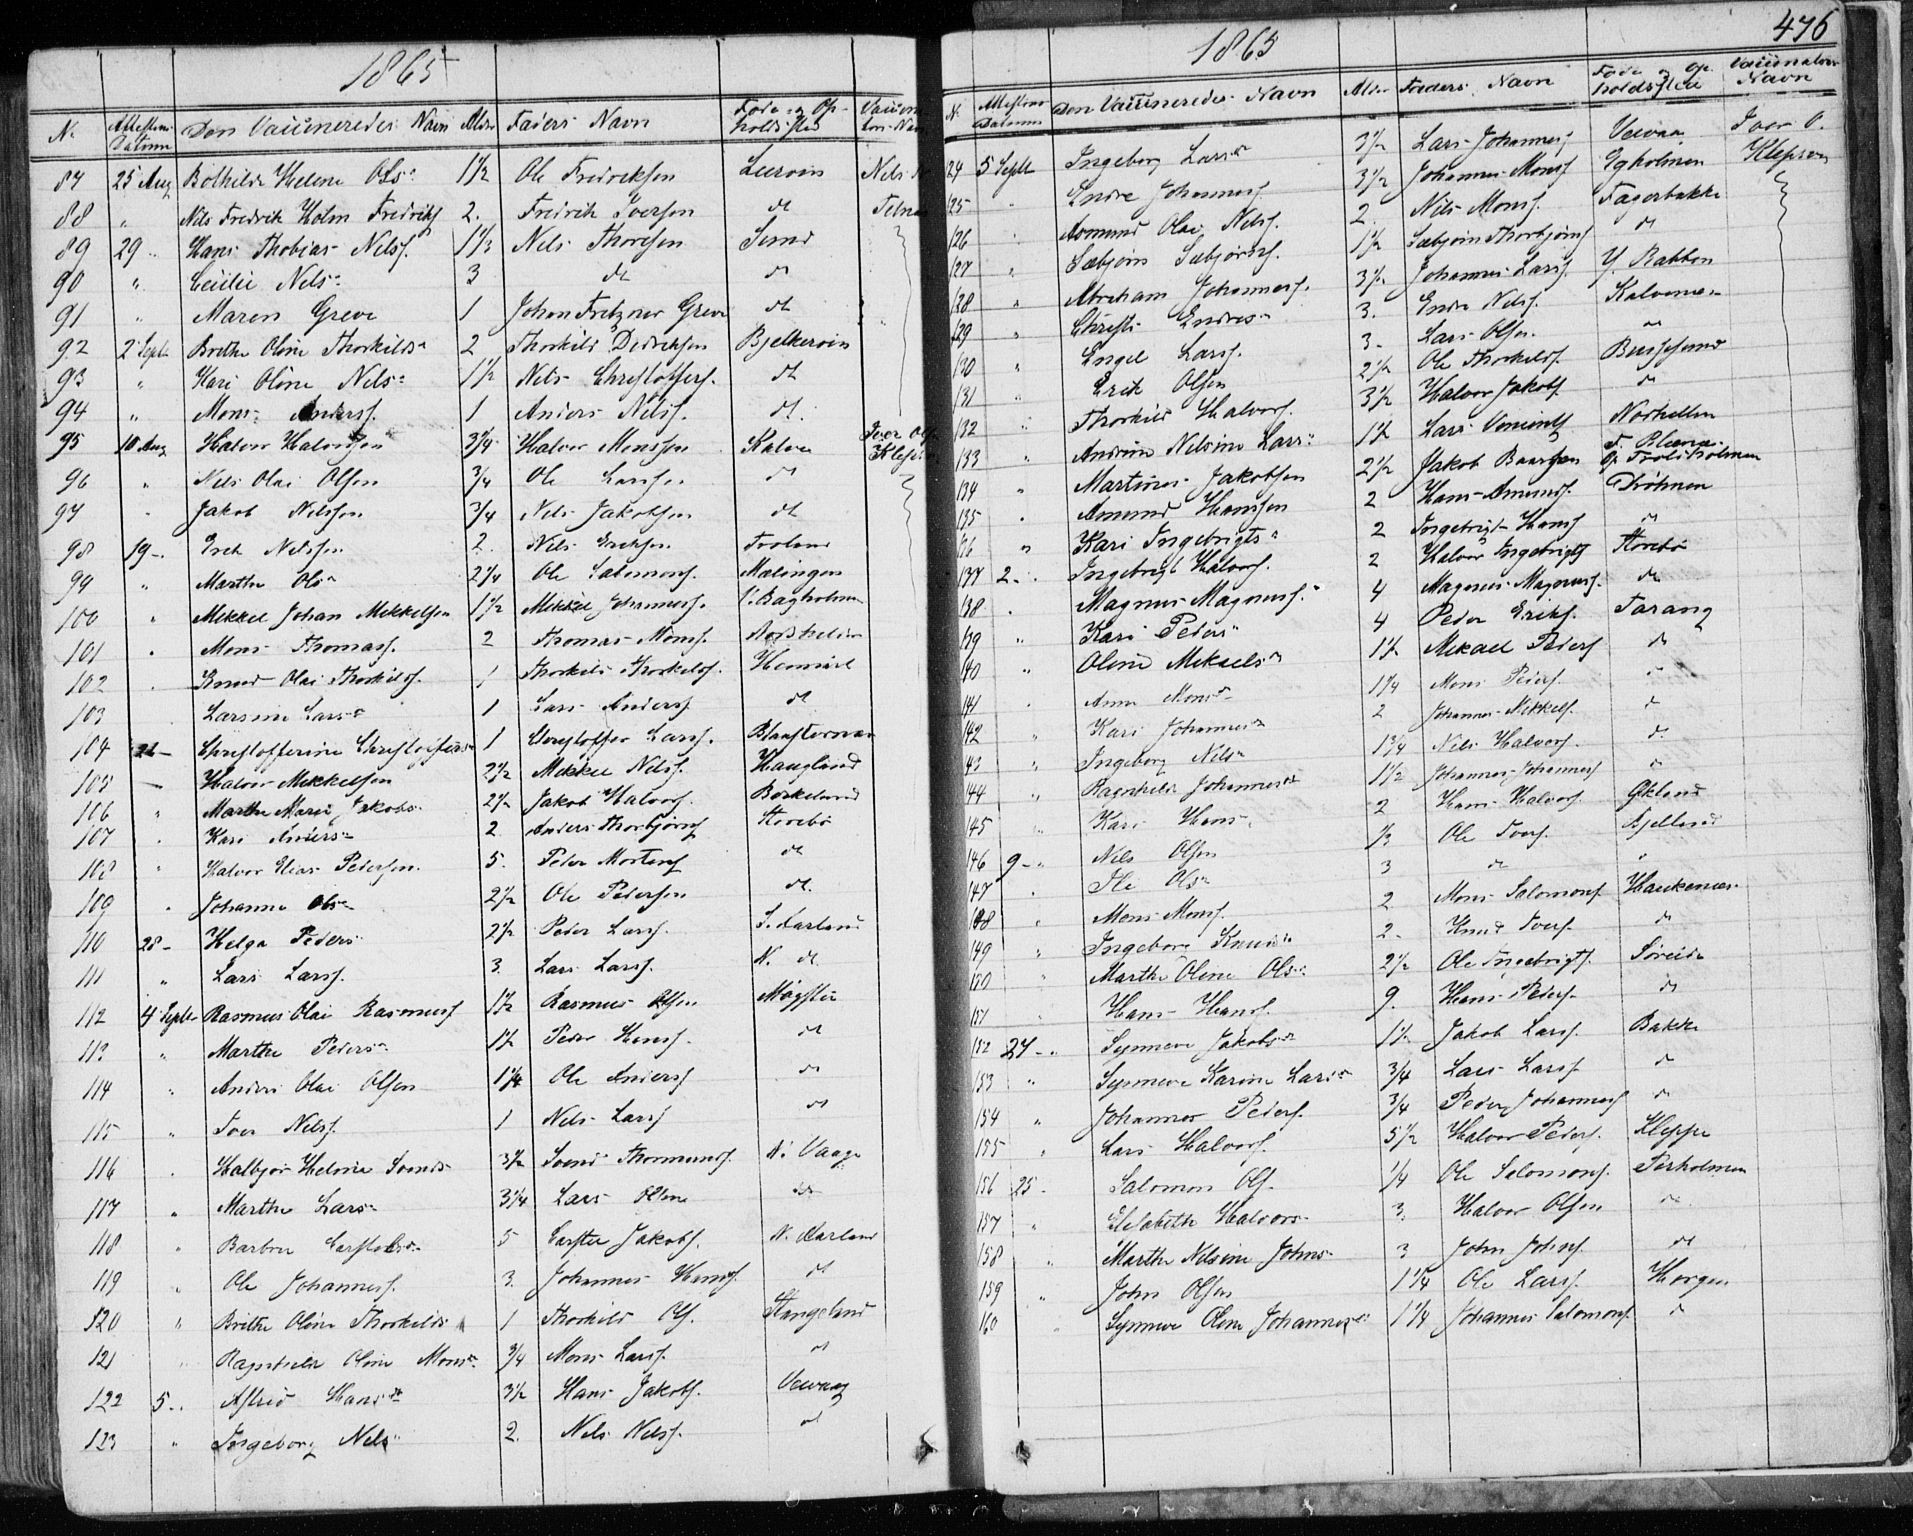 1865
N. Attestens Datum Den Vaccineredes Navn Alder Faders Navn Føde og Opholdssted
87 25 Aug Bothilde Helene Ols 1½ Ole Fredriksen Leervin Nels
88 " Nils Fredrik Holm Fredriks 2. Fredrik Iversen dt Telnes
89 29 " Hans Thobias Nels. 1⅓ Nels Thoresen Sund
90 " Cecilie Nels 3 dt dt
91 " Maren Greve 1 Johan Fritzner Greve dt
92 2 Septr Brethe Oline Thorkilds 2 Thorkild Dedriksen Bjelkervin
93 " Kari Oline Nels 1½ Nils Christoffers. dt
94 " Mons Anders. 1 Anders Nils. dt.
95 10 Aug Halvor Halvorsen 3¼ Halvor Monssen Kalve Iver Ols
96 " Nels Olai Olsen ¾ Ole Larssen dt
97 " Jakob Nilssen ¾ Nels Jakobsen dt
98 19 - Erik Nilssen 2. Nils Eriksen Troland
99 " Marthe Ols 2¼ Ole Salomons. Malingen
100 " Mikkel Johan Mikkelsen 1½ Mikkel Johannes. V. Bagholmen
101 " Mons Thomas. 2 Thomas Mons.
102 " Knud Olai Thorkilds. 1 Thorkild Thorkilds.
103 Larsine Lars 1 Lars Anders dt
104 Christofferine Christoffers 1 Christoffer Lars.
105 - Halvor Mikkelsen 2½ Mikkel Nils. Haugland
106 " Marthe Marie Jakobs 2½ Jakob Halvors.
107 . Kari Anders 2. Anders Thorbjørns Storebø
108 " Halvor Elias Pedersen 5. Peder Mortens dt
109 . Johanne Ols 2½ Ole Pedersen dt.
110 28 - Helga Peders 2½ Peder Lars. S. Karland
111 " Lars Lars. 3. Lars Lars. N. dt
112 4 Septr Rasmus Olai Rasmus 1½ Rasmus Olsen Møgster
113 " Marthe Peders 1½ Peder Hans. dt
114 " Anders Olai Olsen 1¼ Ole Anders dt
115 " Iver Nels. 1 Nels Lars dt
116 . Halbjør Helene Svends 3½ Svend Thormunds. N. Vaage
117 " Marthe Lars 3¼ Lars Olsen dt
118 " Barbro 5 Carsten Jakobs. N. Karland
119 " Ole Johannes. 3. Johannes Hans. dt
120 " Brithe Oline Thorkilds 1 Thorkild Ols. Stangeland
121 " Ragnhilde Oline Mons ¾ Mons Lars. dt
122 5 " Astrid Hans 3½ Hans Jakobs. Vervaag
123 " Ingeborg Nels 2. Nels Nels. dt
476
1865
N. Attestens Datum Den Vaccineredes Navn Alder Faders Navn Føde og Opholdssted Vaccinateur Navn
124 5 Septr Ingeborg Lars 3½ Lars Johannes Iver O.
125 " Endre Johannes 3½ Johannes Mons Ygholmen
126 " Asmund Olai Nels. 2 Nils Mons. Fagerbakke
127 " Sæbjørn Sæbjørns. 1½ Sæbjørn Thorbjørns dt
128 " Abraham Johannes. 3½ Johannes Lars. Y. Rabben
129 " Christi Endres 3. Endre Nels. Kalvenes
130 " Engel Lars. 3 Lars Olsen
131 " Erik Olsen 2½ Ole Thorkilds.
132 " Thorkild Halvors. 3½ Halvor Jakobs dt
133 " Andrine Nilsine Lars 1½ Lars Norhellen
134 " Martines Jakobsen 2½ Jakob Baardsen Op. Troldholmen
135 . Amund Hanssen 2 Hans Amunds. Drøhnen
136 " Kari Ingebrigts 2 Ingebrigt Hans dt
137 2 - Ingebrigt Halvors. 2 Halvor Ingebrigts Storebø
138 . Magnus Magnus. 4 Magnus Magnus. dt
139 " Kari Peders 4 Peder Eriks. Tarang
140 " Oline Mikaels 1½ Mikael Peders dt
141 . Anne Mons 1¼ Mons Peders. dt
142 " Kari Johannes 2 Johannes Mikkels. dt
143 " Ingeborg Nils 1¾ Nils Halvors. dt
144 " Ragnhilde Johannes 1½ Johannes Johannes dt
145 " Kari Hans 2 Hans Halvors. Økland
146 9 - Nels Olsen ⅓ Ole Ivers. Bjelland
147 . Ols 3 dt
148 " Mons Mons. 2 Mons Salomons. Haukenæs
149 " Ingeborg Knuds 2. Knud Ivers. dt
150 " Marthe Oline Ols 2½ Ole Ingebrigts. Søreide
151 " Hans Hans. 9. Hans Peders. dt
152 27 - Synneve Jakobs 1½ Jakob Lars. Bakke
153 " Synneve Karine Lars ¾ Lars Lars. dt
154 " Johannes Peders. ¾ Peder Johannes dt
155 " Lars Halvors. 5½ Halvor Peders. Kleppe
156 25 - Salomon Ols. ¼ Ole Salomons.
157 " Elisabeth Halvors 3. Halvor Olsen
158 " Marthe Nilsine Johns 3 John Johns. dt
159 " John Olsen 1¼ Ole Lars. Horgen
160 " Synneve Oline Johannes 1¼ Johannes Salomons. dt